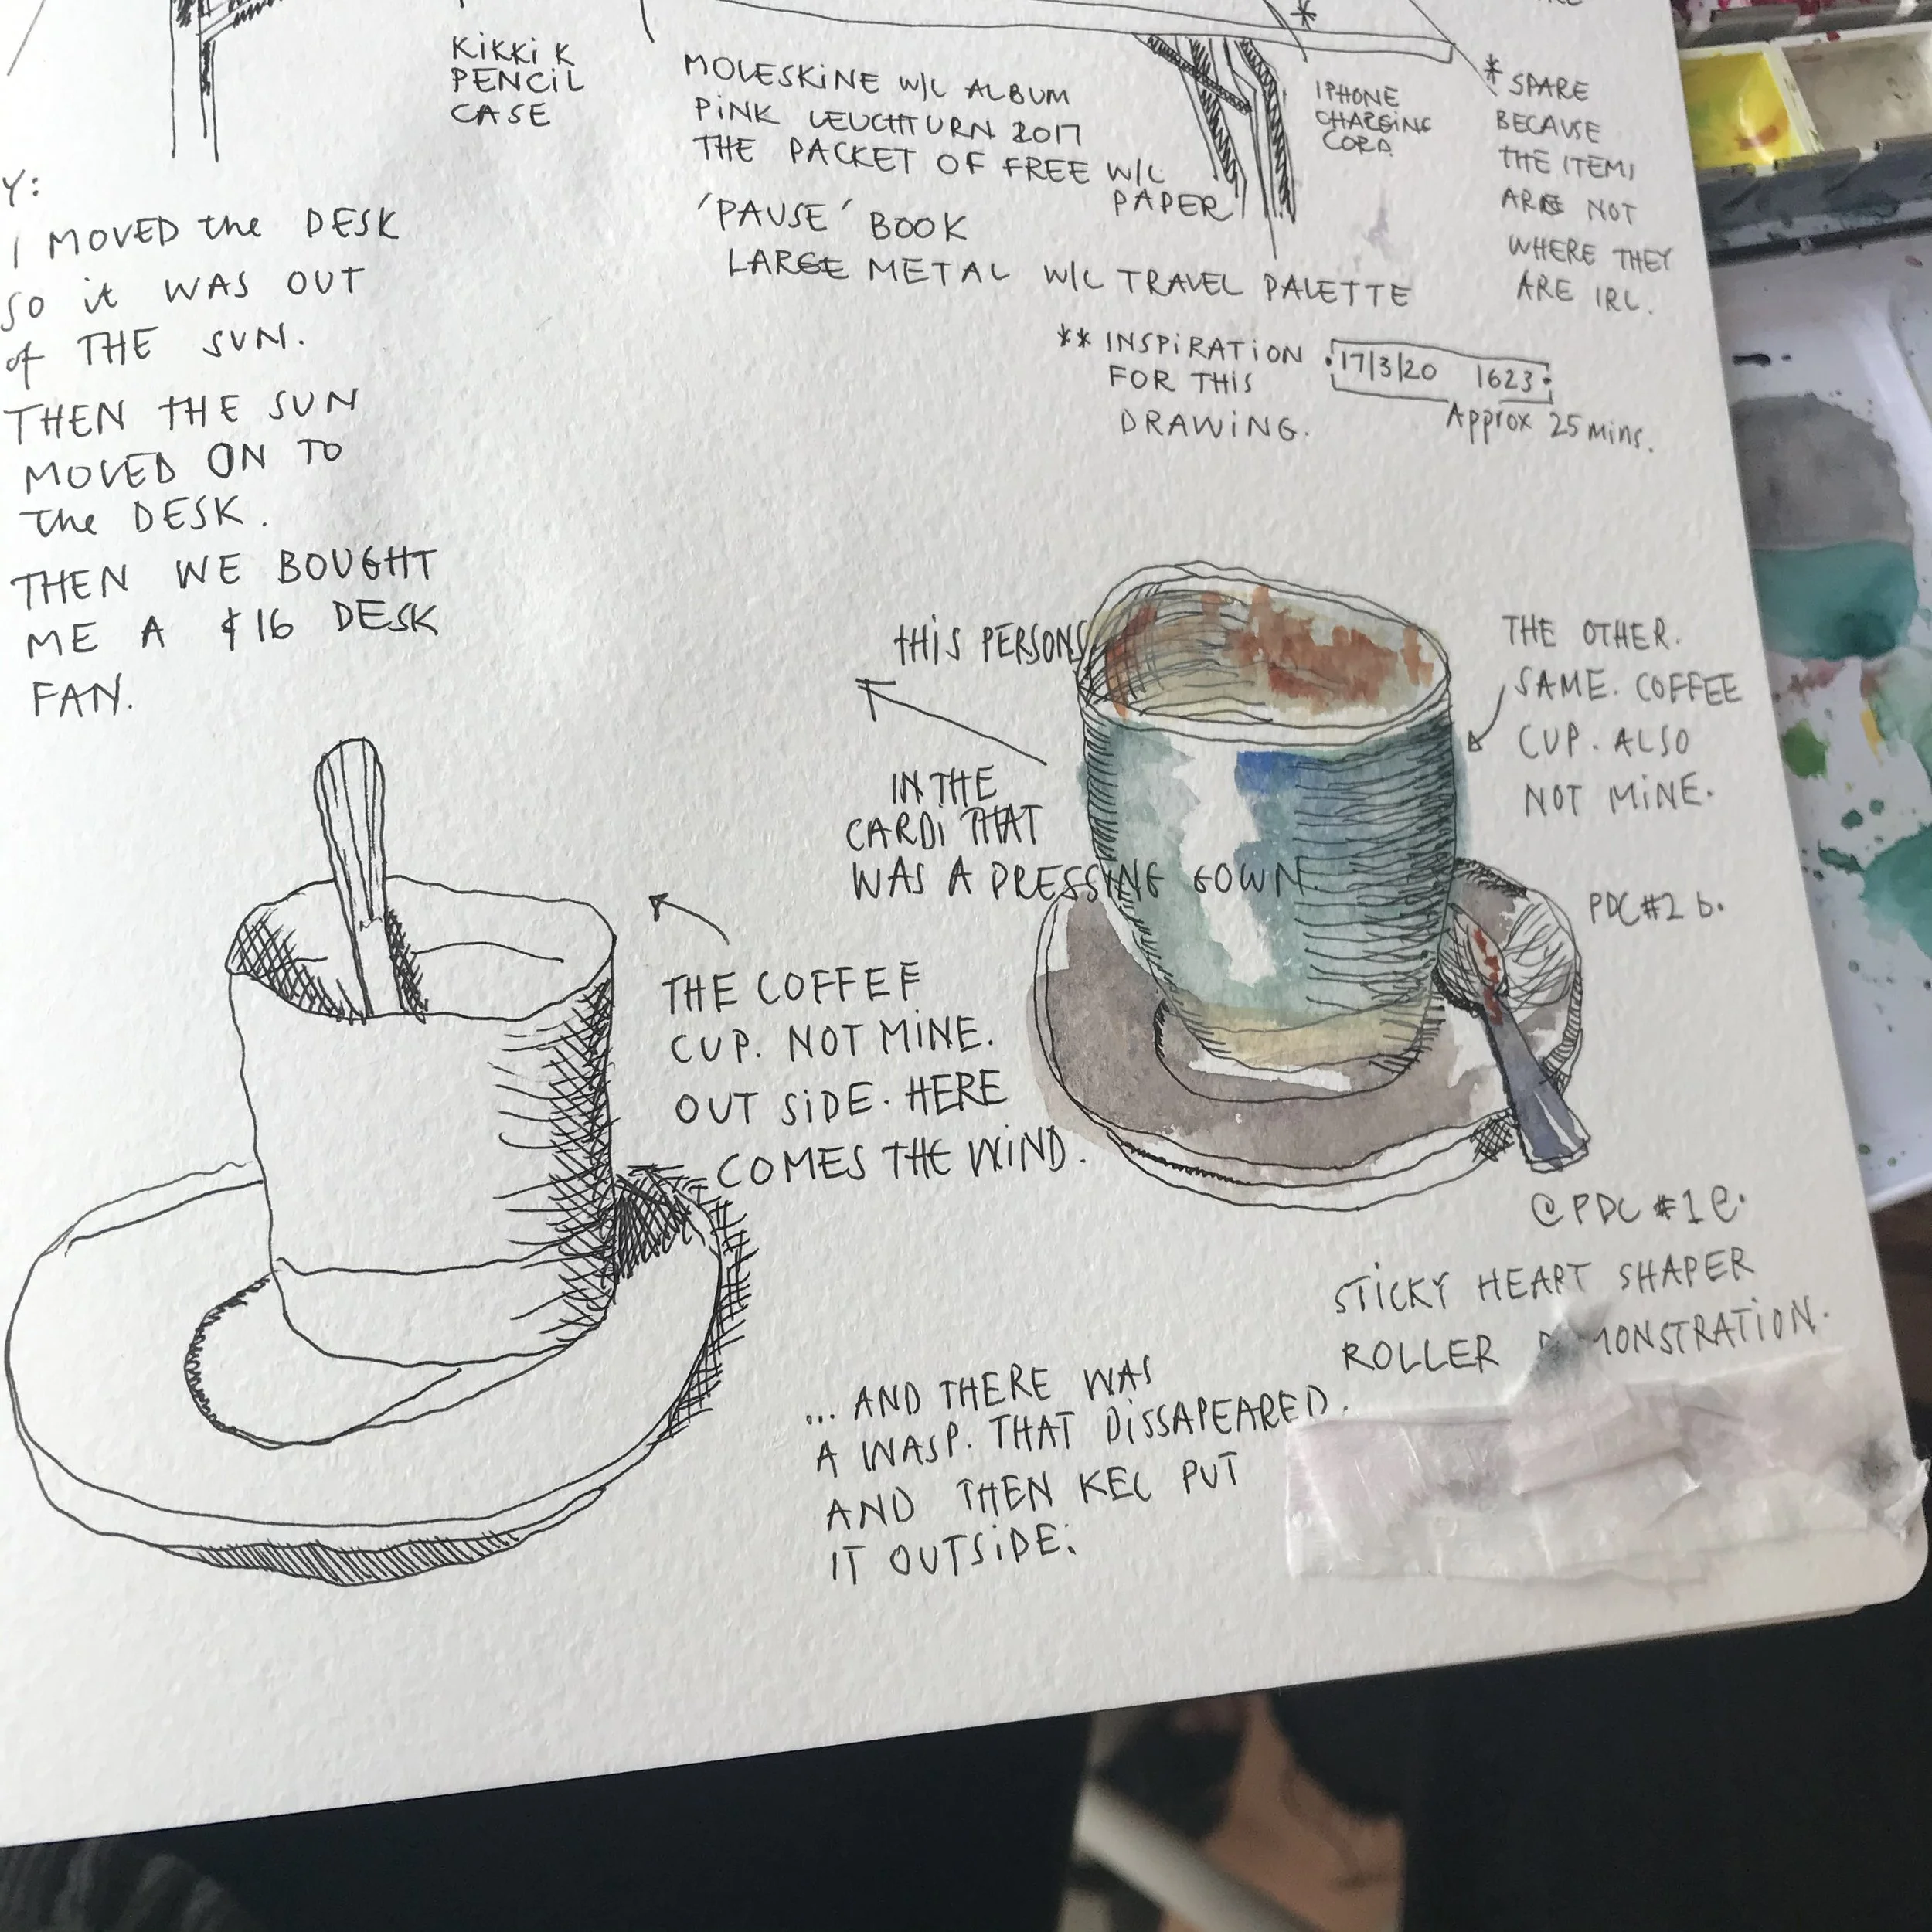 KiKKi K
PENCIL
CASE
MOLESKINE W/C ALBUM
PINK LEUCHTURN 2017
THE PACKET OF FREE W/C
PAPER
'PAUSE' BOOK
LARGE METAL W/C TRAVEL PALETTE
*
IPHONE
CHARGING
CORD
* SPARE
BECAUSE
THE ITEMS
ARE NOT
WHERE THEY
ARE IRL.
** INSPIRATION
FOR THIS
DRAWING.
17/3/20 1623
Approx 25 mins.
Y:
I MOVED the DESK
SO it WAS OUT
of THE SUN.
THEN THE SUN
MOVED ON TO
the DESK.
THEN WE BOUGHT
ME A $16 DESK
FAN.
THIS PERSONS
IN THE
CARDI THAT
WAS A DRESSING GOWN.
THE OTHER.
SAME. COFFEE
CUP. ALSO
NOT MINE.
PDC#2 b.
THE COFFEE
CUP. NOT MINE.
OUT SIDE. HERE
COMES THE WIND.
@PDC #1 e.
STICKY HEART SHAPER
ROLLER DEMONSTRATION.
... AND THERE WAS
A WASP. THAT DISSAPEARED.
AND THEN KEL PUT
IT OUTSIDE.